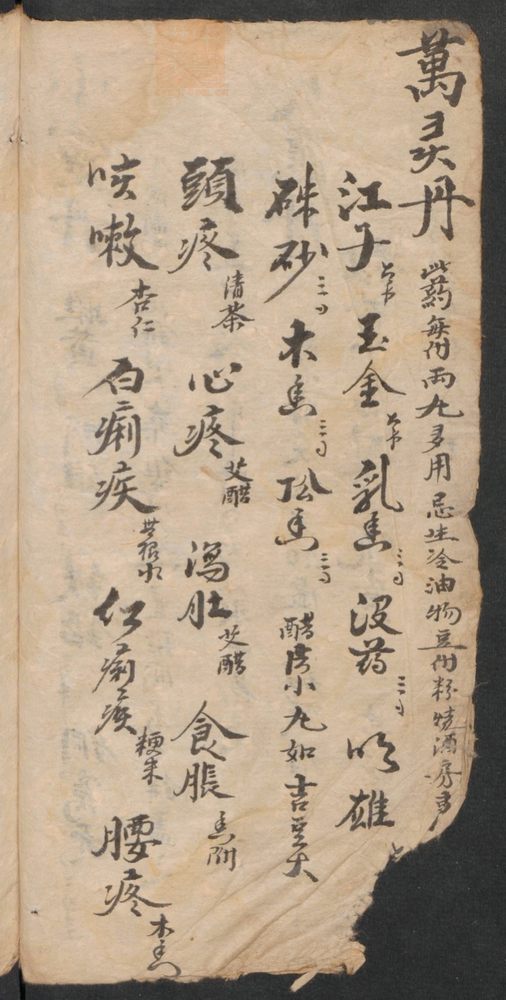 萬灵丹 此药每付两丸多用忌生冷油物豆付粉烧酒房
江子 玉金 乳香三勺 没药三勺 明雄
硃砂三勺 木香三勺 松香三勺 醋 小丸如吉豆大
頭疼清茶 心疼艾醋 泻肚艾醋 食脹香附
咳嗽杏仁 白痢疾 水 红痢疾粳米 腰疼木香